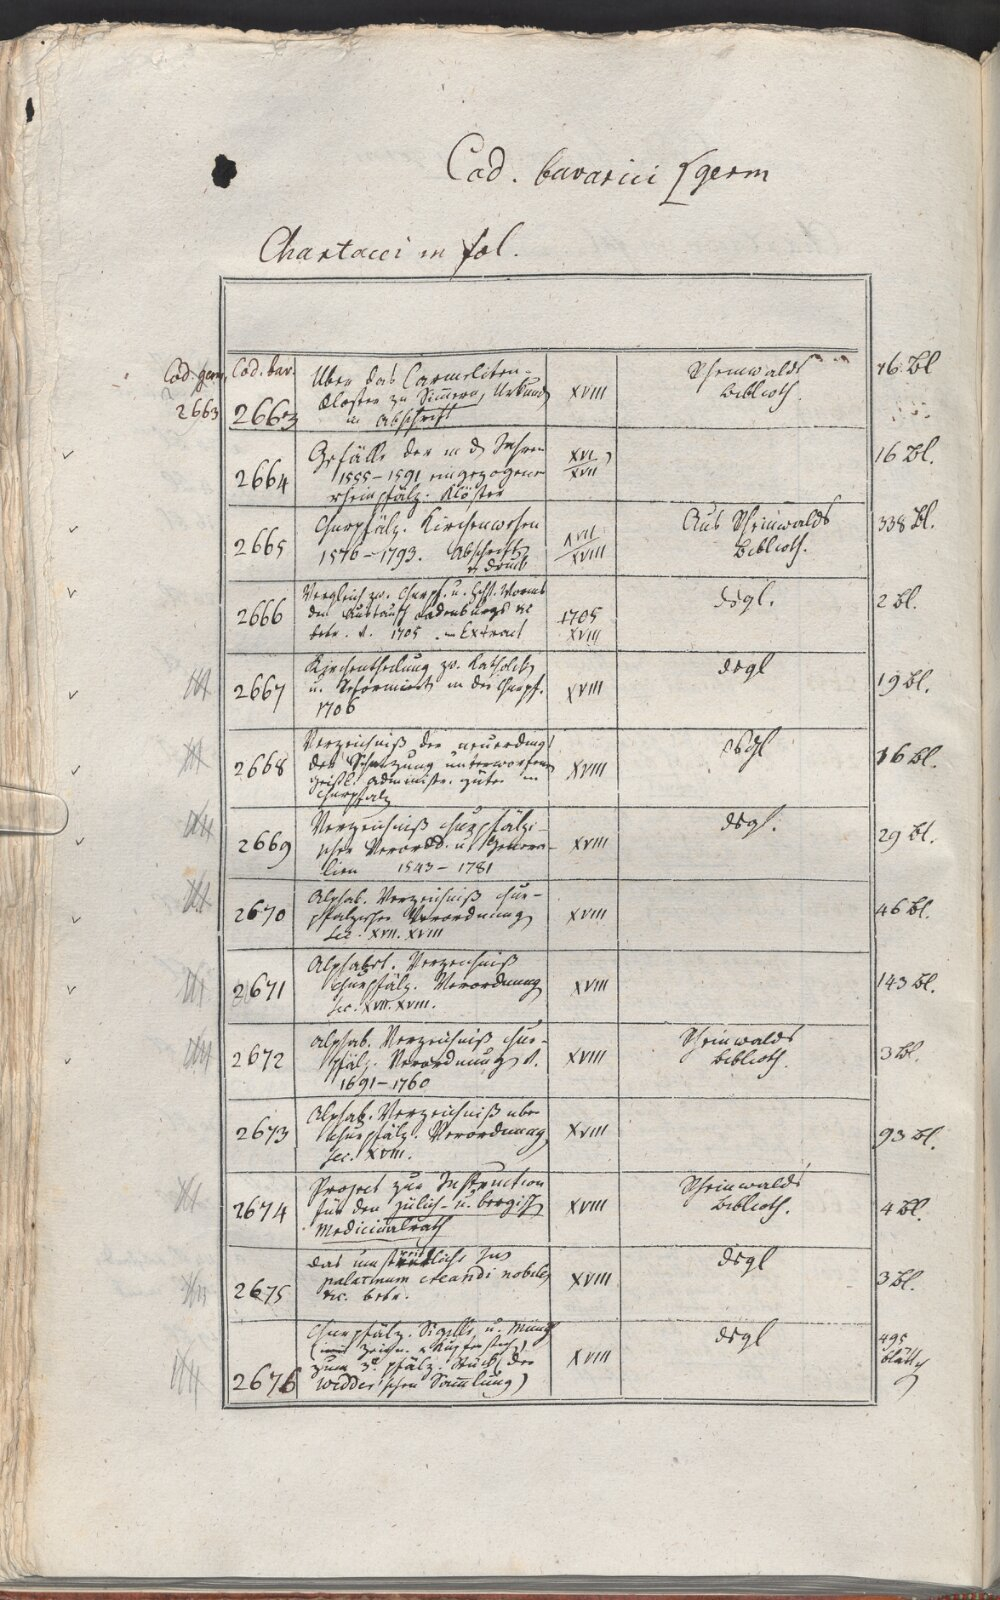 Cod. bavarici [germ
Chartacei in fol.
Cod. germ. 2663
Cod. bav. 2663
Uber das Carmeliten-
Kloster zu Simmern, Urkunden
in Abschrift
XVIII
Rheinwalds
Biblioth.
76 Bl
2664
Gefälle der in d. Jahren
1555-1591 eingezogene
rheinpfälz. Klöster
XVI.
XVII
16 Bl.
2665
Churpfälz. Kirchenwesen
1576-1793. Abschriften
u. Druck
XVII
XVIII
Aus Rheinwalds
Biblioth.
338 Bl.
2666
Vergleich zw. Churpf. u. Hchst. Worms
den Austausch Ladenburgs etc
betr. v. 1705. in Extract
1705
XVIII
dsgl.
2 Bl.
2667
Kirchentheilung zw. Katholick
u. Reformirten in der Churpf.
1706
XVIII
dsgl
19 Bl.
2668
Verzeichniß der neuerdings
der Schatzung unterworfenen
geistl. administr. güter in
Churpfalz
XVIII
dsgl
16 Bl.
2669
Verzeichniß Churpfälzi-
scher Verordd. u. Genera-
lien 1543-1781
XVIII
dsgl.
29 Bl.
2670
Alphab. Verzeichniß chur-
pfälzischer Verordnung
sec. XVII. XVIII
XVIII
46 Bl.
2671
Alphabet. Verzeichniß
churpfälz. Verordnung
sec. XVII. XVIII.
XVIII
143 Bl.
2672
Alphab. Verzeichniß chur-
pfälz. Verordnung v.
1691-1760
XVIII
Rheinwalds
Biblioth.
3 Bl.
2673
Alphab. Verzeichniß über
churpfälz. Verordnung
sec. XVIII.
XVIII
93 Bl.
2674
Project zur Instruction
für den jülich- u. bergisch
Medicinalrath
XVIII
Rheinwalds
Biblioth.
4 Bl.
2675
das Jus
palatinum creandi nobiles
etc. betr.
XVIII
dsgl
3 Bl.
2676
Churpfälz. Sigille u. Münz
(mit Zeichn. u. Kupferstich)
zum 3t. pfälz. Stück (der
Widder'schen Sammlung)
XVIII
dsgl
495
blätt